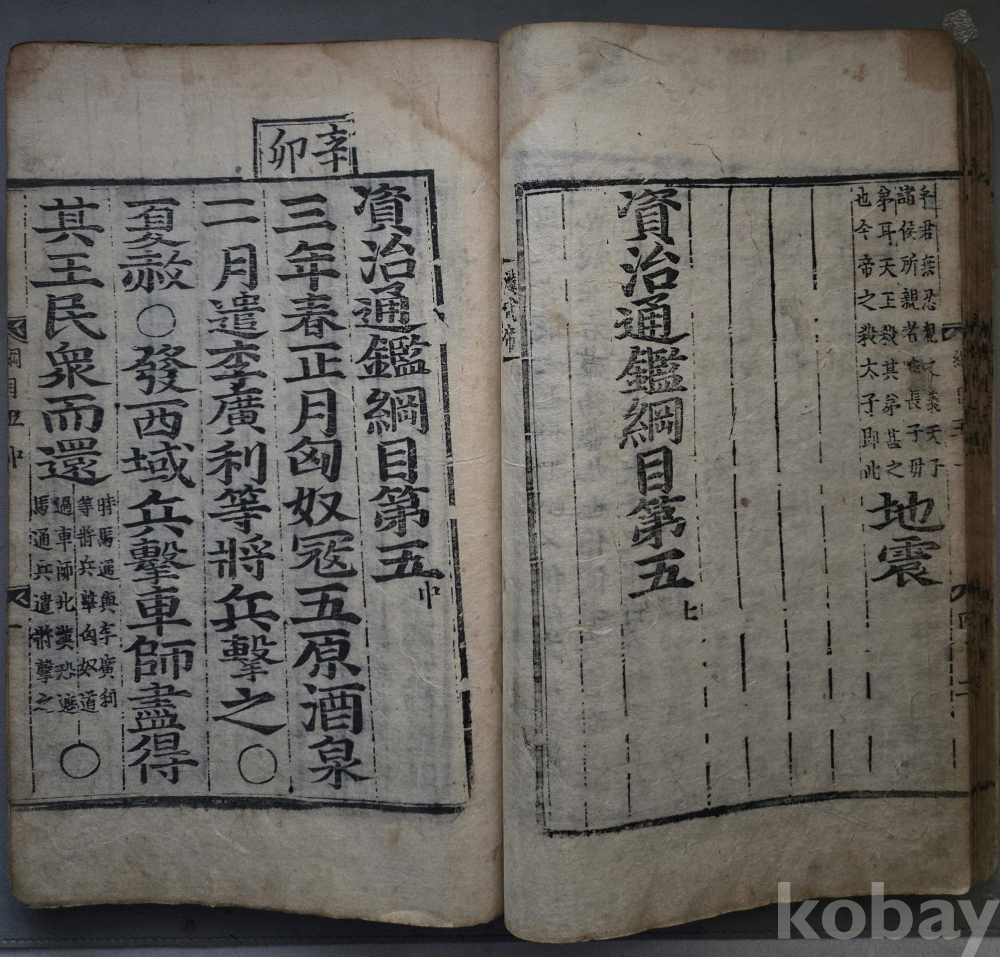 名君無忍親之義天子
諸侯所親者唯長子毋
弟耳天王殺其弟甚之
也今帝之殺太子即此
地震
資治通鑑綱目第五上
漢武帝
辛卯
資治通鑑綱目第五中
三年春正月匈奴寇五原酒泉
二月遣李廣利等將兵擊之○
夏赦○發西域兵擊車師盡得
其王民衆而還
時馬通與李廣利
等將兵擊匈奴道
過車師北漢恐遮
馬通兵遣將擊之
○
綱目五中
一
kobay